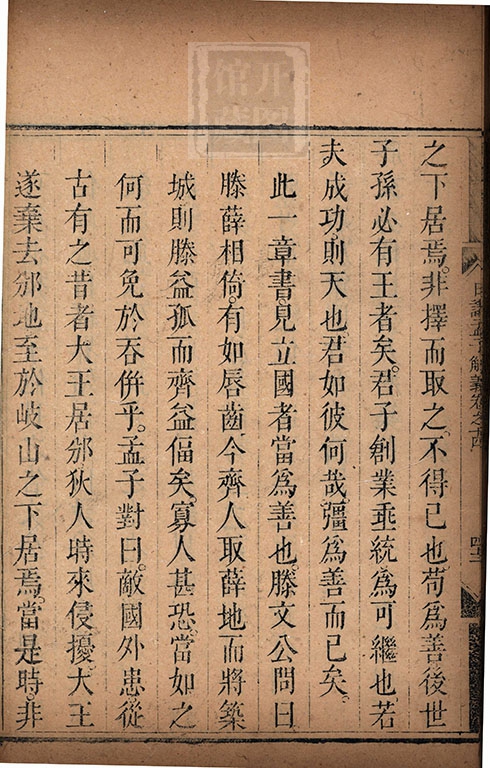 之下居焉。非擇而取之。不得已也苟爲善後世
子孫必有王者矣。君子創業垂統爲可繼也若
夫成功則天也君如彼何哉彊爲善而已矣。
此一章書。見立國者當爲善也。滕文公問曰
滕薛相倚。有如唇齒今齊人取薛地而將築
城則滕益孤而齊益偪矣。寡人甚恐。當如之
何而可免於吞併乎。孟子對曰。敵國外患從
古有之昔者大王居邠狄人時來侵擾。大王
遂棄去邠地至於岐山之下居焉。當是時。非
日講孟子解義卷之